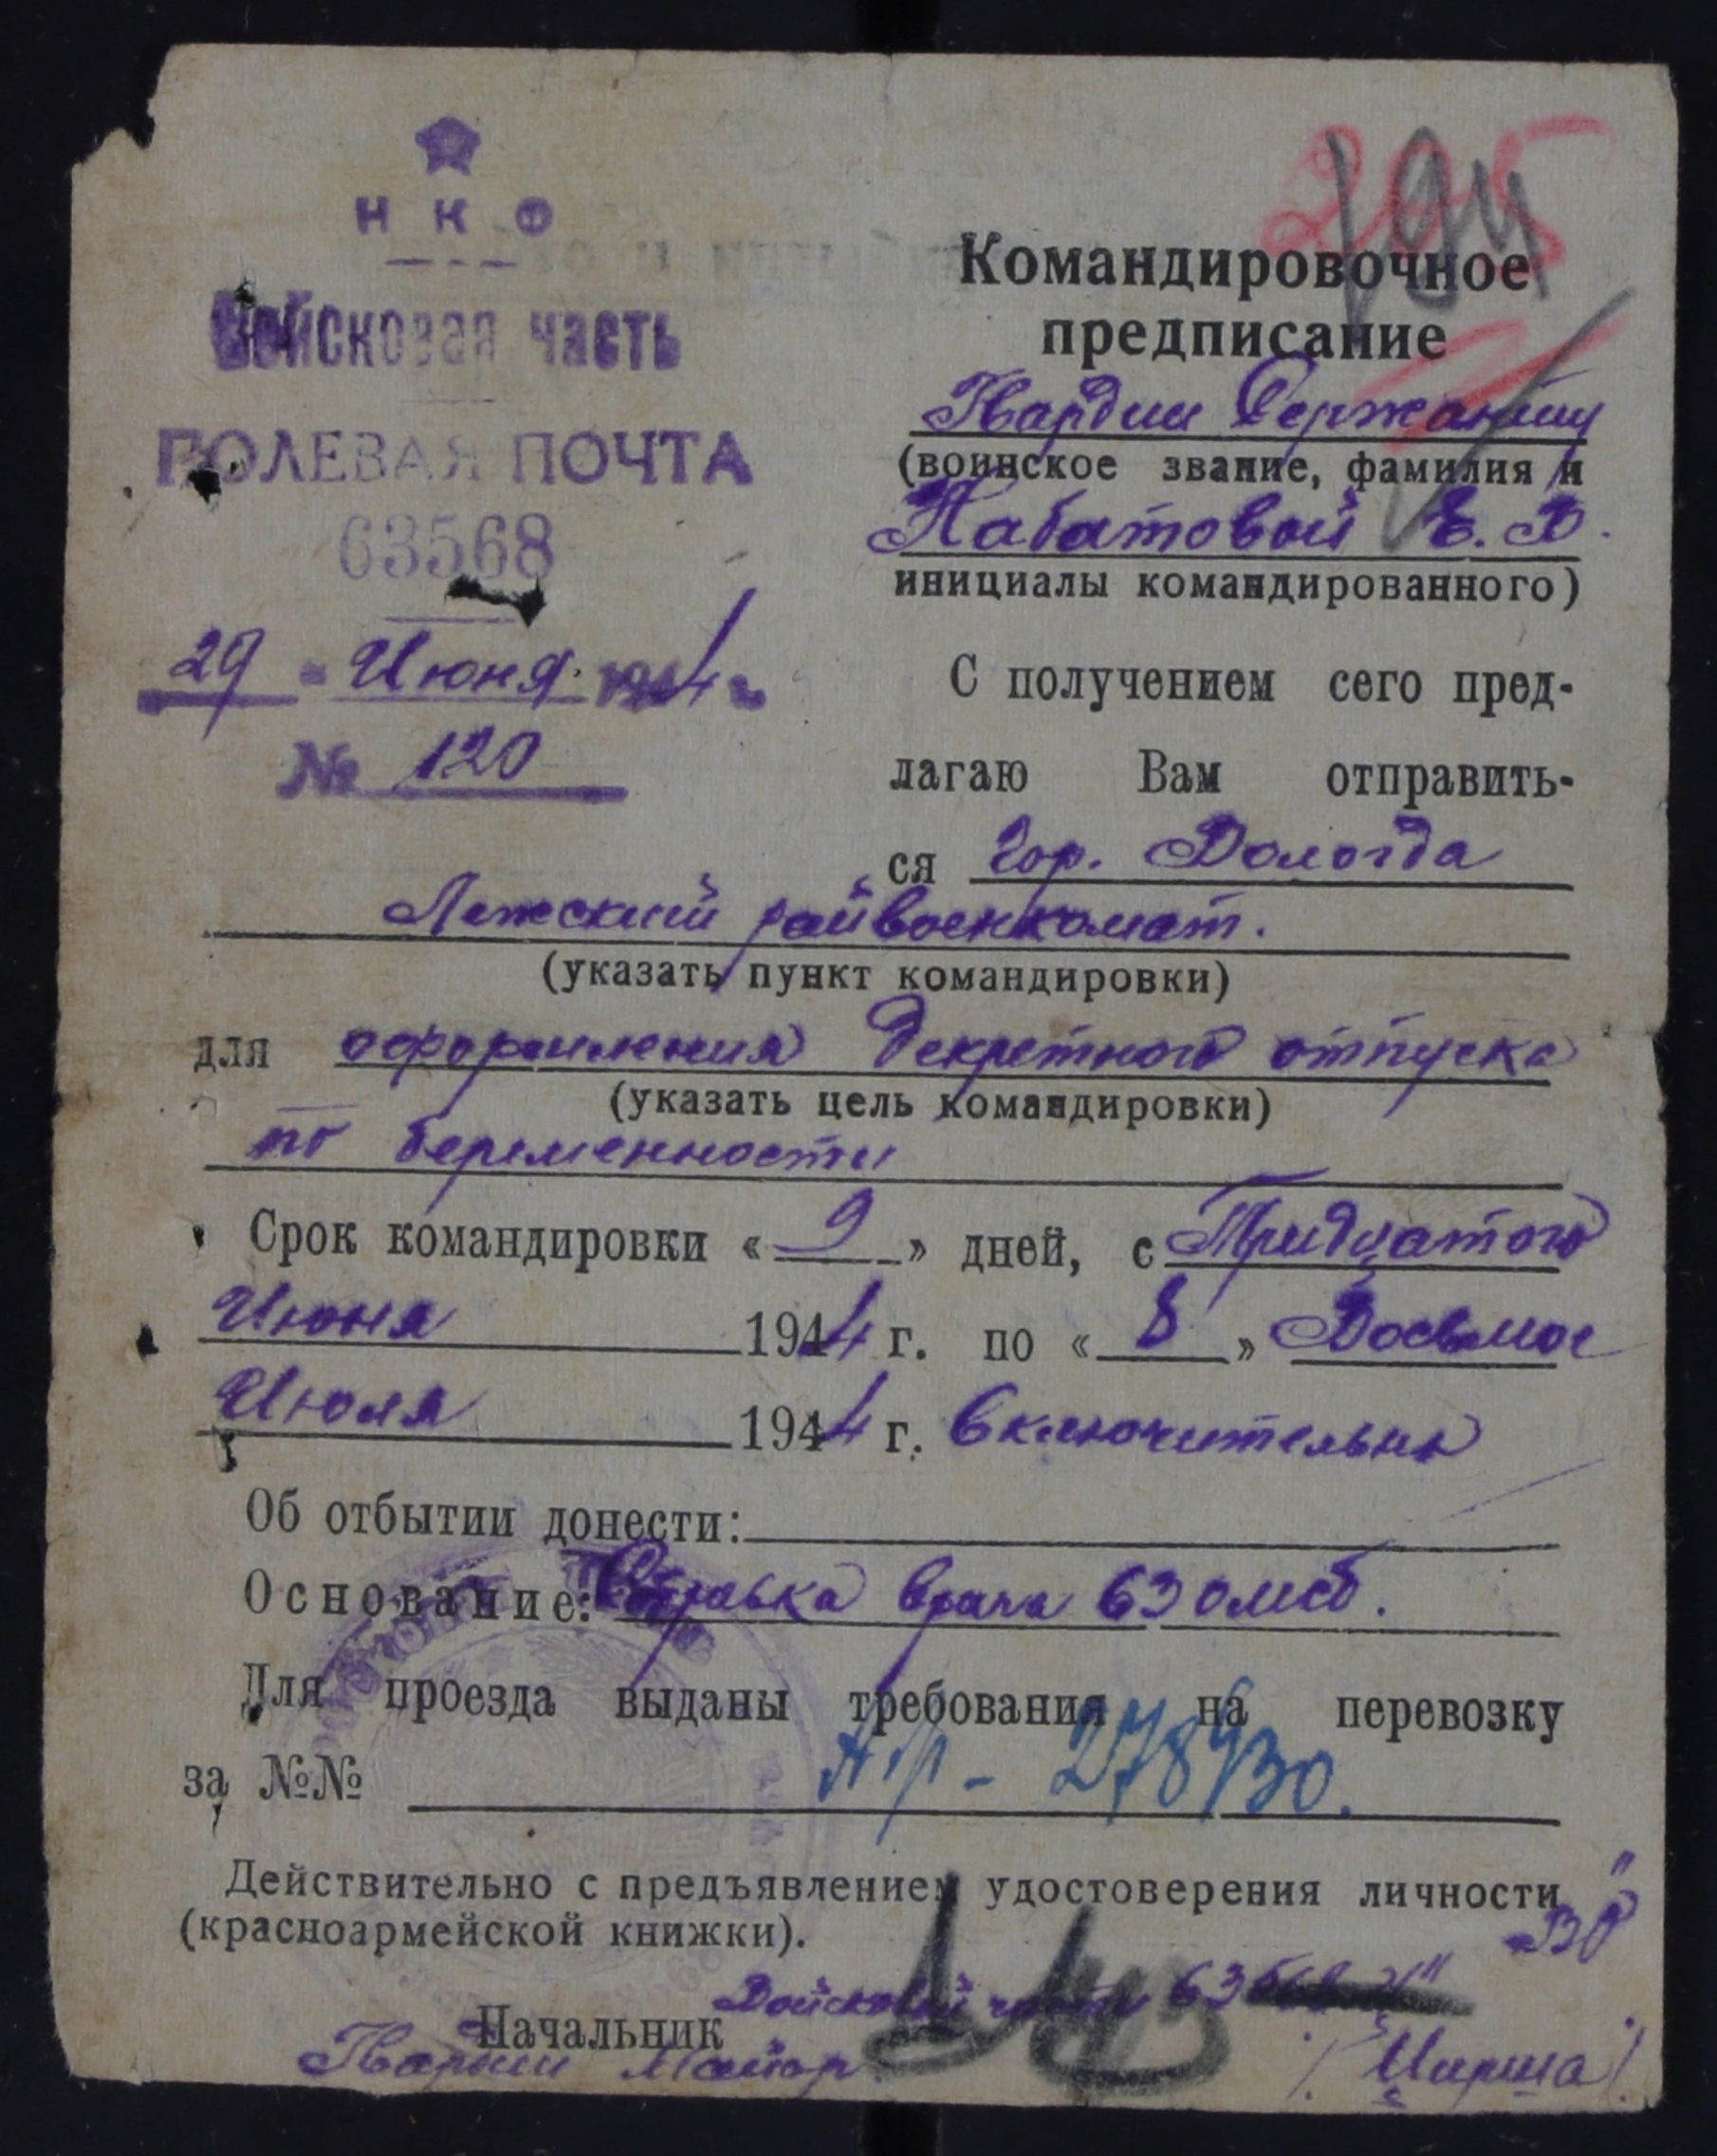 НКФ
Войсковая часть
ПОЛЕВАЯ ПОЧТА
63568
29 - Июня 1944 г.
№ 120
295
194
Командировочное
предписание
Гвардии Сержанту
(воинское звание, фамилия и
Набатовой Е. В.
инициалы командированного)
С получением сего пред-
лагаю Вам отправить-
ся гор. Вологда
Лежский райвоенкомат.
(указать пункт командировки)
для оформления декретного отпуска
(указать цель командировки)
по беременности
Срок командировки «9» дней, с Тридцатого
Июня 1944 г. по «8» Восьмое
Июля 1944 г. включительно
Об отбытии донести:
Основание: Справка врача 63 омсб.
Для проезда выданы требования на перевозку
за №№
278430.
Действительно с предъявлением удостоверения личности
(красноармейской книжки).
Начальник Войсковой части 63568
Гвардии Майор